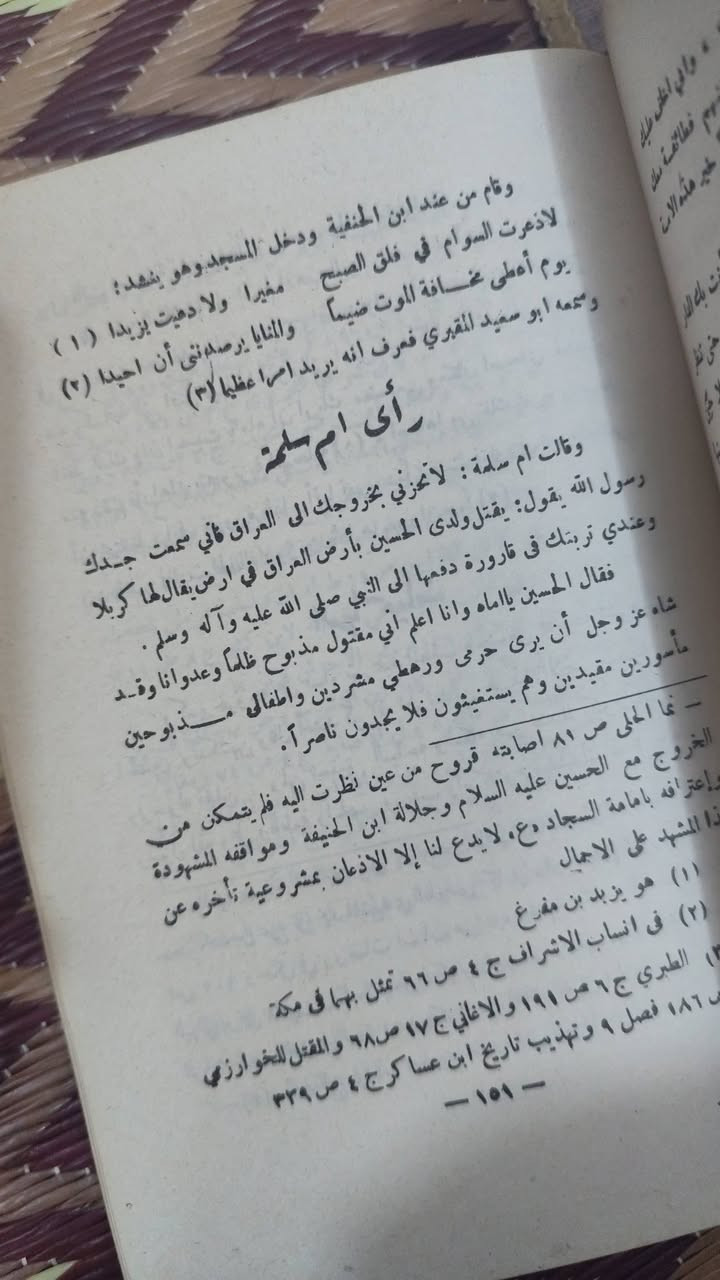 وقام من عند ابن الحنفية ودخل المسجد وهو ينشد :
لاذعرت السوام في فلق الصبح مغيرا ولا دعيت يزيدا (١)
يوم أعطى مخافة الموت ضيما والمنايا يرصدنني أن احيدا (٢)
وسمعه ابو سعيد المقبري فعرف انه يريد امرا عظيما (٣)
رأى ام سلمة
وقالت ام سلمة : لا تحزني بخروجك الى العراق فاني سمعت جدك
رسول الله يقول : يقتل ولدى الحسين بأرض العراق في ارض يقال لها كربلا
وعندي تربتك فى قارورة دفعها الى النبي صلى الله عليه وآله وسلم .
فقال الحسين يااماه وانا اعلم اني مقتول مذبوح ظلماً وعدوانا وقد
شاه عز وجل أن يرى حرمى ورهطي مشردين واطفالى مذبوحين
مأسورين مقيدين وهم يستغيثون فلا يجدون ناصراً .
— نما الحلى ص ٨١ اصابته قروح من عين نظرت اليه فلم يتمكن من
الخروج مع الحسين عليه السلام وجلالة ابن الحنيفة ومواقفه المشهودة
وإعترافه بامامة السجاد «ع» لا يدع لنا إلا الاذعان بمشروعية تأخره عن
المشهد على الاجمال
(١) هو يزيد بن مفرغ
(٢) فى انساب الاشراف ج ٤ ص ٦٦ تمثل بهما فى مكة
الطبري ج ٦ ص ١٩١ والاغاني ج ١٧ ص ٦٨ والمقتل للخوارزمي
ص ١٨٦ فصل ٩ وتهذيب تاريخ ابن عساكر ج ٤ ص ٣٢٩
— ١٥١ —